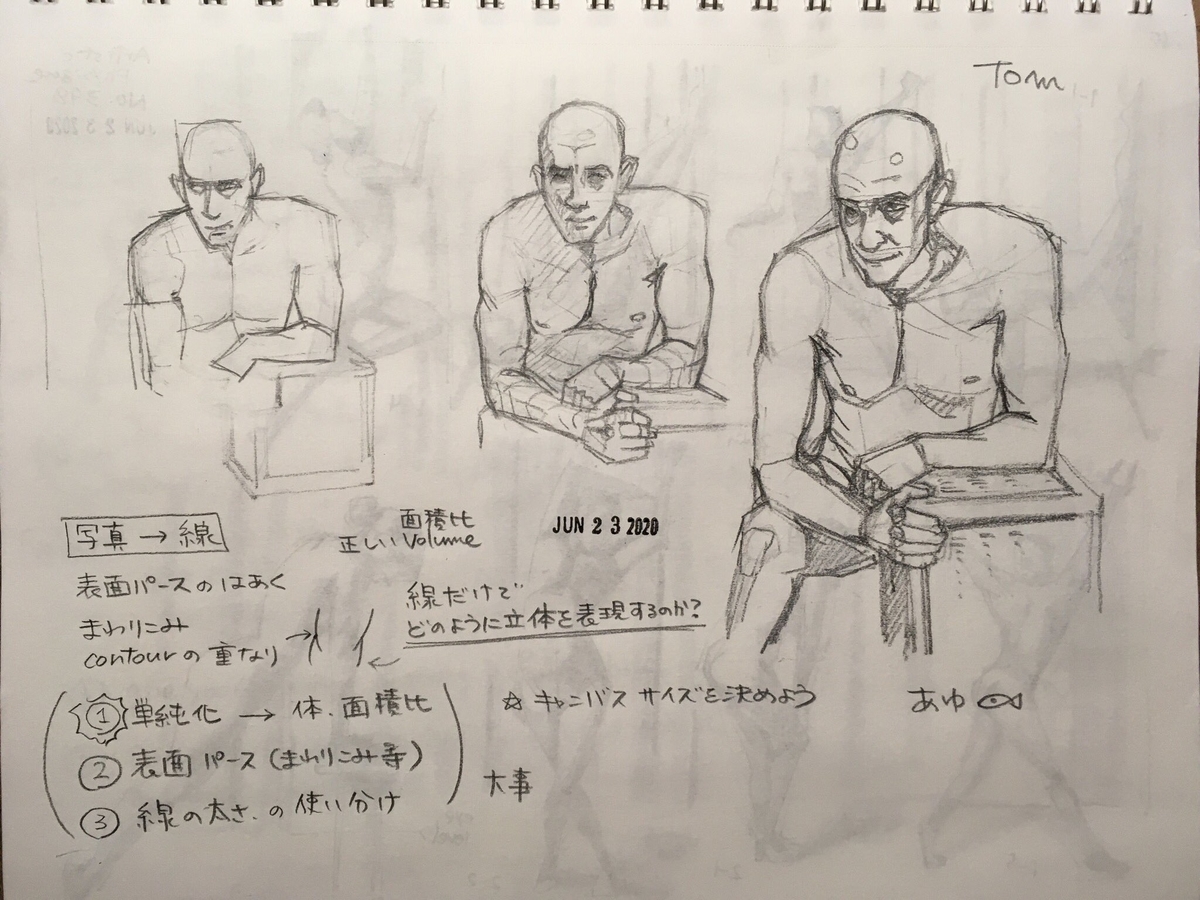 Tom
写真→線
面積比
正しいVolume
JUN 23 2020
表面パースのはあく
まわりこみ
contourの重なり→
線だけで
どのように立体を表現するのか?
①単純化→体、面積比
②表面パース(まわりこみ等)
③線の太さ.の使い分け
大事
☆キャンバスサイズを決めよう
あゆ